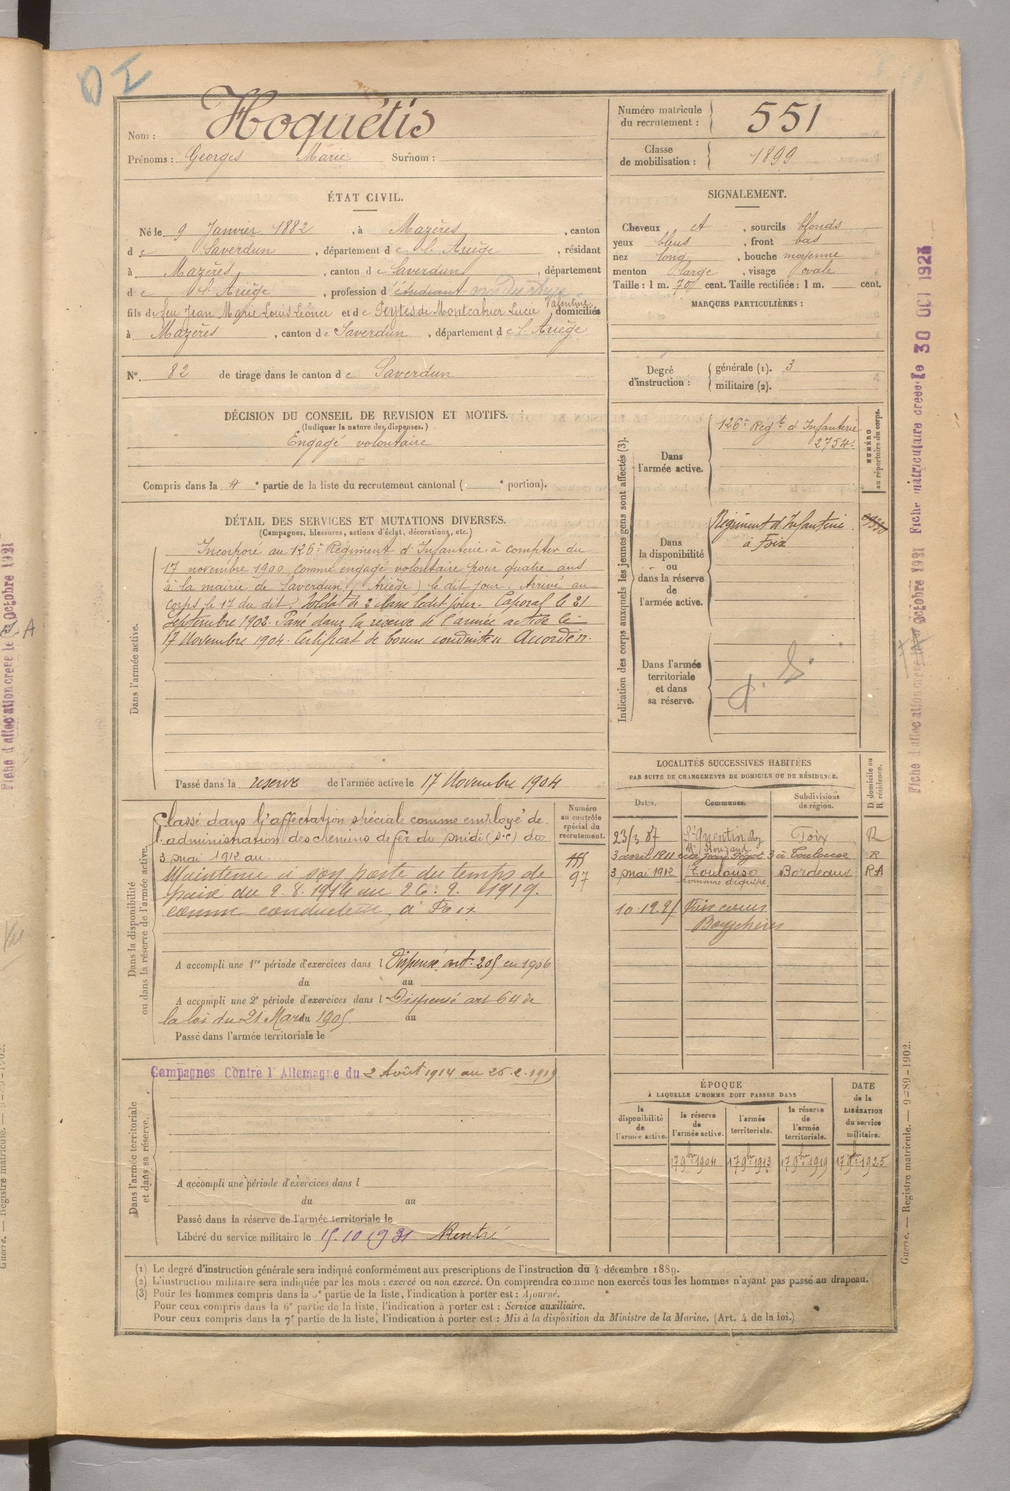 Nom : Hoquétis
Prénoms : Georges Marie Surnom :
Numéro matricule
du recrutement : 551
Classe
de mobilisation : 1899
ÉTAT CIVIL.
Né le 9 Janvier 1882, à Mazères, canton
de Saverdun, département de l'Ariège, résidant
à Mazères, canton de Saverdun, département
de l'Ariège, profession d'étudiant
fils de feu Jean Marie Louis Léonce et de Peytes de Montcabrier Lucie Valentine domiciliés
à Mazères, canton de Saverdun, département de l'Ariège
N° 82 de tirage dans le canton de Saverdun
SIGNALEMENT.
Cheveux et, sourcils blonds
yeux bleus, front bas
nez long, bouche moyenne
menton large, visage ovale
Taille : 1 m. 70 cent. Taille rectifiée : 1 m. cent.
MARQUES PARTICULIÈRES :
Degré
d'instruction :
générale (1). 3
militaire (2).
DÉCISION DU CONSEIL DE REVISION ET MOTIFS.
(Indiquer la nature des dispenses.)
Engagé volontaire
Compris dans la 4e partie de la liste du recrutement cantonal ( e portion).
DÉTAIL DES SERVICES ET MUTATIONS DIVERSES.
(Campagnes, blessures, actions d'éclat, décorations, etc.)
Dans l'armée active.
Incorporé au 126e Régiment d'Infanterie à compter du
17 novembre 1900 comme engagé volontaire pour quatre ans
à la mairie de Saverdun (Ariège) le dit jour. Arrivé au
corps le 17 du dit. Soldat de 2e classe ledit jour. Caporal le 21
Septembre 1902. Passé dans la réserve de l'armée active le
17 Novembre 1904. Certificat de bonne conduite Accordé.
Passé dans la réserve de l'armée active le 17 Novembre 1904
Indication des corps auxquels les jeunes gens sont affectés (3).
NUMÉRO
au répertoire du corps.
Dans
l'armée active.
126e Régt d'Infanterie
2754
Dans
la disponibilité
ou
dans la réserve
de
l'armée active.
Régiment d'Infanterie
à Foix
Dans l'armée
territoriale
et dans
sa réserve.
Dans la disponibilité
ou dans la réserve de l'armée active.
Numéro
au contrôle
spécial du
recrutement.
97
Classé dans l'affectation spéciale comme employé de
l'administration des chemins de fer du midi du
3 mai 1912 au
Maintenu à son poste du temps de
paix du 2.8.1914 au 26.2.1919.
comme conducteur, à Foix
A accompli une 1re période d'exercices dans l Dispensé art. 205 en 1906
du au
A accompli une 2e période d'exercices dans l Dispensé art 64 de
la loi du 21 Mars 1905 au
Passé dans l'armée territoriale le
LOCALITÉS SUCCESSIVES HABITÉES
PAR SUITE DE CHANGEMENTS DE DOMICILE OU DE RÉSIDENCE.
Dates. Communes. Subdivisions
de région. D domicile ou
R résidence.
Foix R
3 avril 1911 à Toulouse R
3 mai 1912 Toulouse Bordeaux RA
Dans l'armée territoriale
et dans sa réserve.
Campagnes Contre l'Allemagne du 2 Août 1914 au 26.2.1919
A accompli une période d'exercices dans l
du au
Passé dans la réserve de l'armée territoriale le
Libéré du service militaire le 15.10.1931
ÉPOQUE
À LAQUELLE L'HOMME DOIT PASSER DANS
la
disponibilité
de
l'armée active.
la réserve
de
l'armée active.
l'armée
territoriale.
la réserve
de
l'armée
territoriale.
DATE
de la
LIBÉRATION
du service
militaire.
17 9bre 1904 17 9bre 1913 17 9bre 1919 17 9bre 1925
(1) Le degré d'instruction générale sera indiqué conformément aux prescriptions de l'instruction du 4 décembre 1889.
(2) L'instruction militaire sera indiquée par les mots : exercé ou non exercé. On comprendra comme non exercés tous les hommes n'ayant pas passé au drapeau.
(3) Pour les hommes compris dans la 5e partie de la liste, l'indication à porter est : Ajourné.
Pour ceux compris dans la 6e partie de la liste, l'indication à porter est : Service auxiliaire.
Pour ceux compris dans la 7e partie de la liste, l'indication à porter est : Mis à la disposition du Ministre de la Marine. (Art. 4 de la loi.)
Guerre. — Registre matricule. — 9-89-1902.